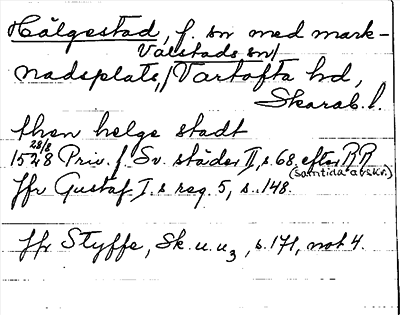 Hälgestad, f. sn med mark-
Valstads sn/
nadsplats,/ Vartofta hd,
Skarab. l.
then helge stadt
28/8
1528 Priv. f. Sv. städer II, s. 68. efter RR
(samtida avskr.)
Jfr Gustaf I. s reg. 5, s. 148.
Jfr Styffe, Sk. u. u3, s. 171, not 4.